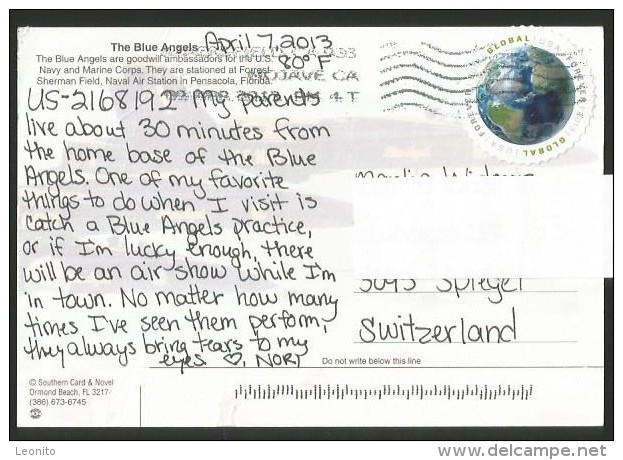 The Blue Angels
April 7, 2013
The Blue Angels are goodwill ambassadors for the U.S.
80°F
Navy and Marine Corps. They are stationed at Forrest
Sherman Field, Naval Air Station in Pensacola, Florida.
MOJAVE CA
US-2168192 My parents
live about 30 minutes from
the home base of the Blue
Angels. One of my favorite
things to do when I visit is
catch a Blue Angels practice,
or if I'm lucky enough, there
will be an air show while I'm
in town. No matter how many
times I've seen them perform,
they always bring tears to my
eyes ♡, NORI
GLOBAL USA FOREVER
GLOBAL USA FOREVER
Spiegel
Switzerland
Do not write below this line
© Southern Card & Novel
Ormond Beach, FL 3217
(386) 673-6745
Leonito
www.delcampe.net